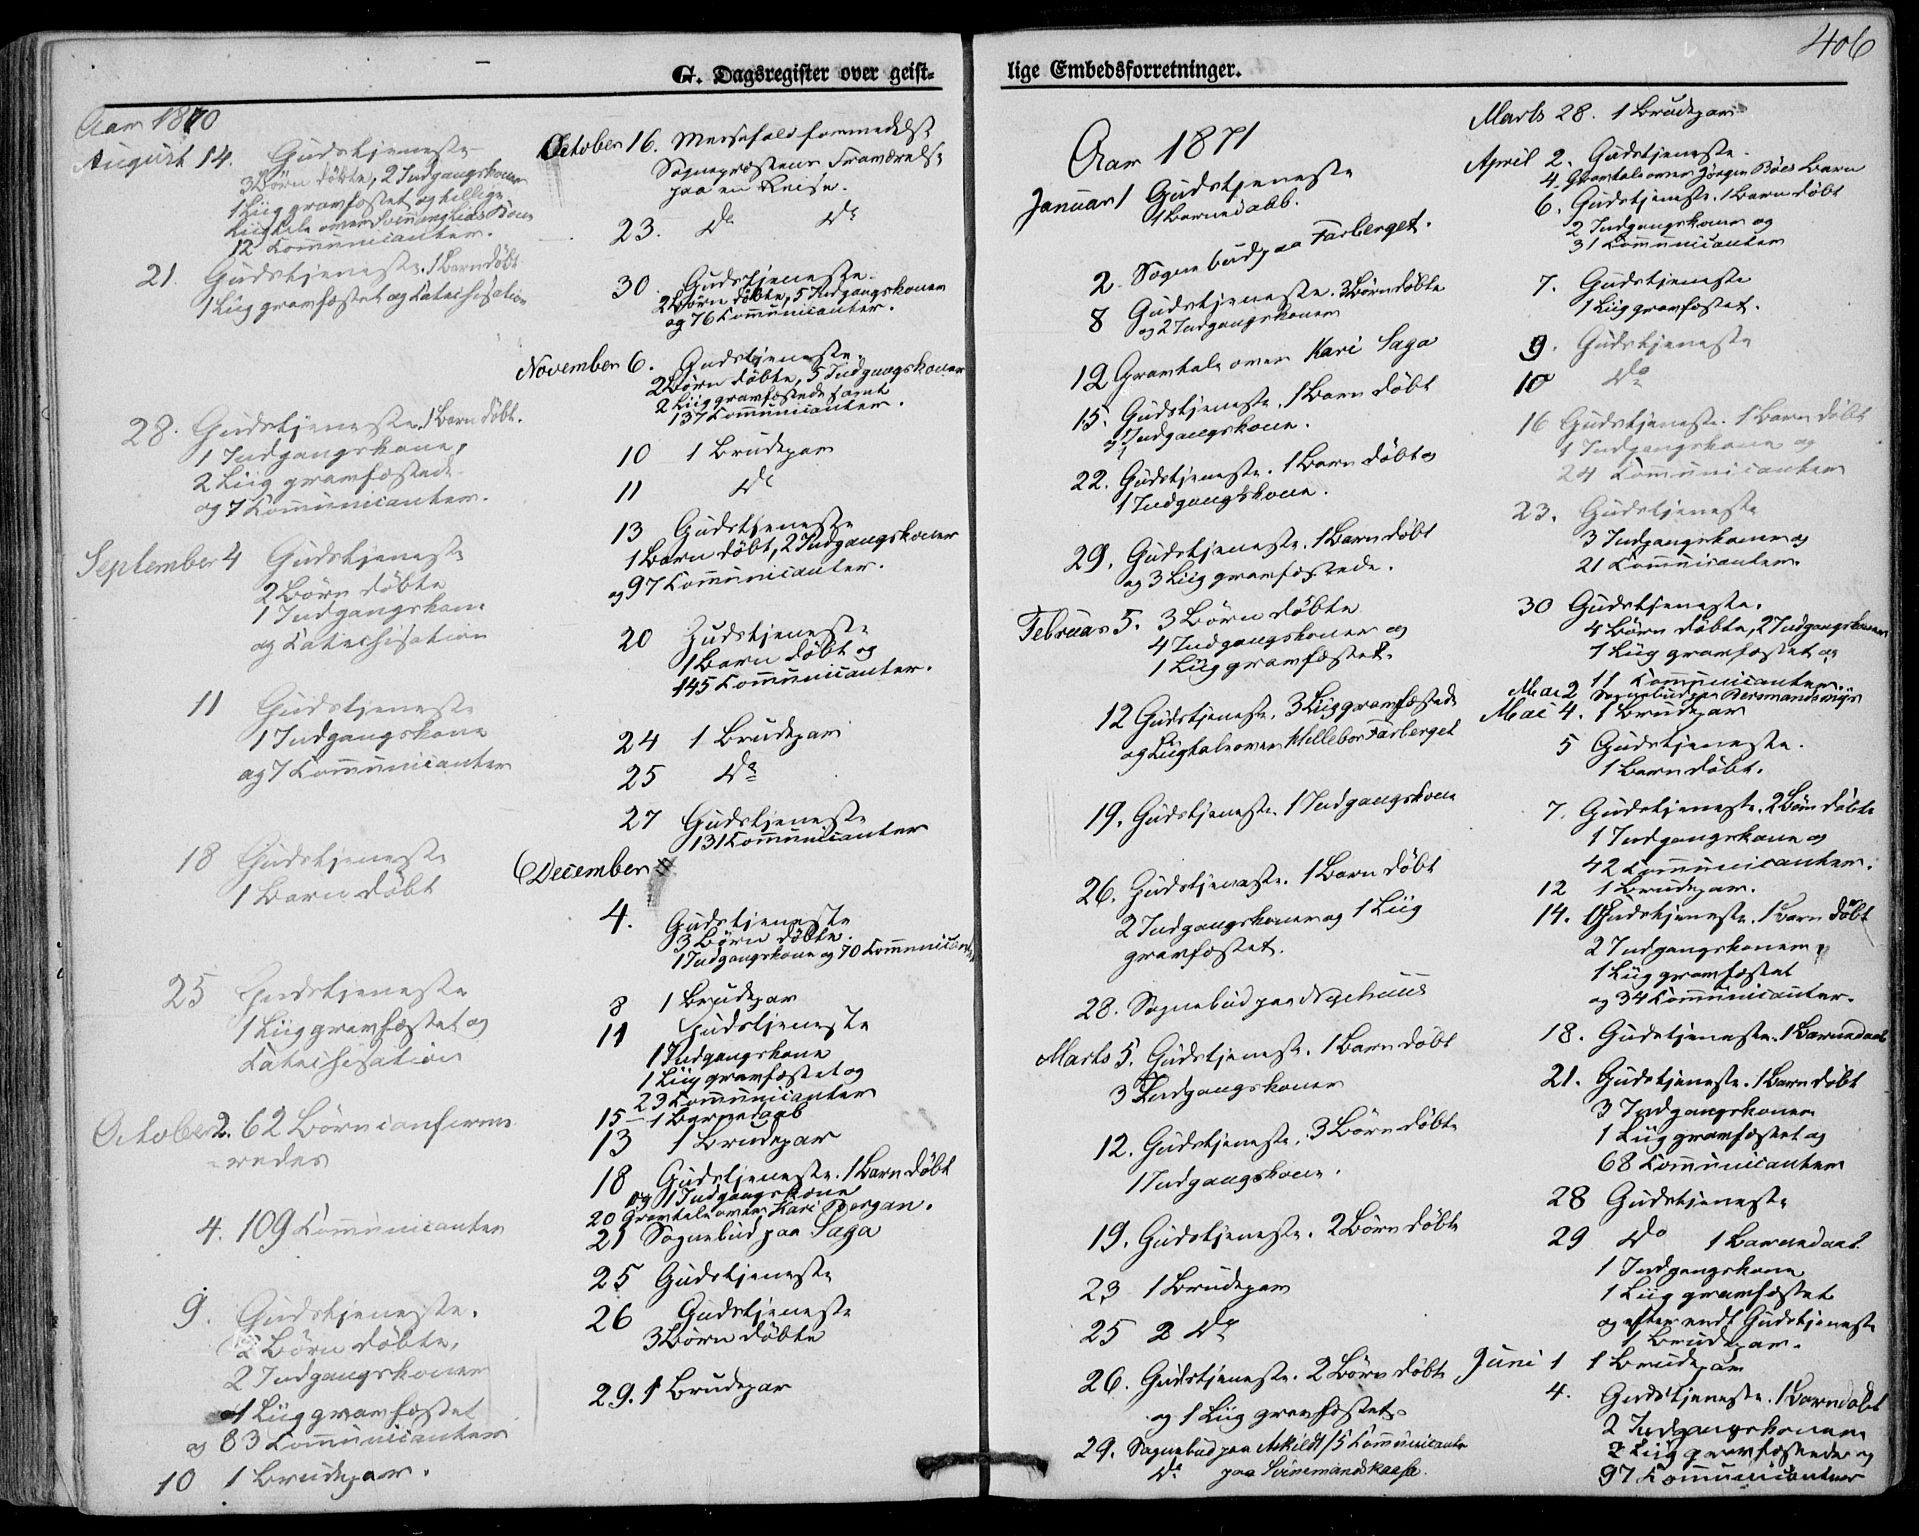 406
G. Dagsregister over geist-
lige Embedsforretninger.
Aar 1870
August 14. Gudstjeneste
3 Børn døbte, 2 Indgangskoner
1 Liig gravfæstet og tillige
Liigtale over Kone
12 Communicanter.
21. Gudstjeneste. 1 Barn døbt
1 Liig gravfæstet og Catechisation
28. Gudstjeneste. 1 Barn døbt.
1 Indgangskone,
2 Liig gravfæstede
og 7 Communicanter.
September 4 Gudstjeneste
2 Børn døbte
1 Indgangskone
og Catechisation
11 Gudstjeneste
1 Indgangskone
og 7 Communicanter
18 Gudstjeneste
1 Barn døbt
25 Gudstjeneste
1 Liig gravfæstet og
Catechisation
October 2. 62 Børn confirme-
=redes
4. 109 Communicanter
9. Gudstjeneste.
2 Børn døbte,
2 Indgangskoner
1 Liig gravfæstet
og 83 Communicanter
10 1 Brudepar.
October 16. Messefald formedelst
Sognepræstens Fraværelse
paa en Reise.
23. Do Do
30 Gudstjeneste.
2 Børn døbte, 5 Indgangskoner
og 76 Communicanter.
November 6. Gudstjeneste.
2 Børn døbte, 5 Indgangskoner
2 Liig gravfæstede samt
137 Communicanter.
10 1 Brudepar
11 Do
13 Gudstjeneste
1 Barn døbt, 2 Indgangskoner
og 97 Communicanter.
20 Gudstjeneste
1 Barn døbt og
145 Communicanter.
24 1 Brudepar
25 Do
27 Gudstjeneste
131 Communicanter
December
4. Gudstjeneste
3 Børn døbte.
1 Indgangskone og 70 Communicanter
8 1 Brudepar
11 Gudstjeneste
1 Indgangskone
1 Liig gravfæstet og
23 Communicanter
15 — 1 Barnedaab
13 1 Brudepar
18 Gudstjeneste. 1 Barn døbt
og 1 Indgangskone
20 Gravtale over Kari Bergan.
21 Sognebud paa Saga
25 Gudstjeneste
26 Gudstjeneste
3 Børn døbte
29. 1 Brudepar
Aar 1871
Januar 1 Gudstjeneste
1 Barnedaab.
2. Sognebud paa Farberget.
8 Gudstjeneste. 3 Børn døbte
og 2 Indgangskoner
12 Gravtale over Kari Saga
15. Gudstjeneste. 1 Barn døbt
og 1 Indgangskone.
22. Gudstjeneste. 1 Barn døbt og
1 Indgangskone.
29. Gudstjeneste. 1 Barn døbt
og 3 Liig gravfæstede.
Februar 5. 3 Børn døbte
4 Indgangskoner og
1 Liig gravfæstet.
12 Gudstjeneste. 3 Liig gravfæstede
og Liigtale over Hellebor Farberget
19. Gudstjeneste 1 Indgangskone
26. Gudstjeneste. 1 Barn døbt
2 Indgangskoner og 1 Liig
gravfæstet.
28. Sognebud paa Nyehuus
Marts 5. Gudstjeneste. 1 Barn døbt
3 Indgangskoner
12. Gudstjeneste. 3 Børn døbte
1 Indgangskone.
19. Gudstjeneste. 2 Børn døbte
23 1 Brudepar
25 2 Do
26. Gudstjeneste. 2 Børn døbte
og 1 Liig gravfæstet.
29. Sognebud paa Askildt / 5 Communicanter
Do paa Svinemandskaasa.
Marts 28. 1 Brudepar
April 2. Gudstjeneste.
4. Gravtale over Jørgen Bøes Barn
6. Gudstjeneste. 1 Barn døbt
2 Indgangskoner og
31 Communicanter
7. Gudstjeneste
1 Liig gravfæstet.
9. Gudstjeneste
10 Do
16 Gudstjeneste. 1 Barn døbt
1 Indgangskone og
24 Communicanter
23. Gudstjeneste
3 Indgangskoner og
21 Communicanter.
30 Gudstjeneste.
4 Børn døbte, 2 Indgangskoner
1 Liig gravfæstet og
11 Communicanter.
Mai 2 Sognebud paa
Mai 4. 1 Brudepar
5 Gudstjeneste.
1 Barn døbt.
7. Gudstjeneste. 2 Børn døbte
1 Indgangskone og
42 Communicanter.
12 1 Brudepar.
14. Gudstjeneste. 1 Barn døbt
2 Indgangskoner,
1 Liig gravfæstet
og 34 Communicanter.
18. Gudstjeneste. 1 Barnedaab
21. Gudstjeneste. 1 Barn døbt
3 Indgangskoner
1 Liig gravfæstet og
68 Communicanter
28 Gudstjeneste
29 Do 1 Barnedaab.
1 Indgangskone
1 Liig gravfæstet
og efter endt Gudstjeneste
1 Brudepar.
Juni 1 1 Brudepar
4. Gudstjeneste. 1 Barn døbt
2 Indgangskoner
2 Liig gravfæstede og
97 Communicanter